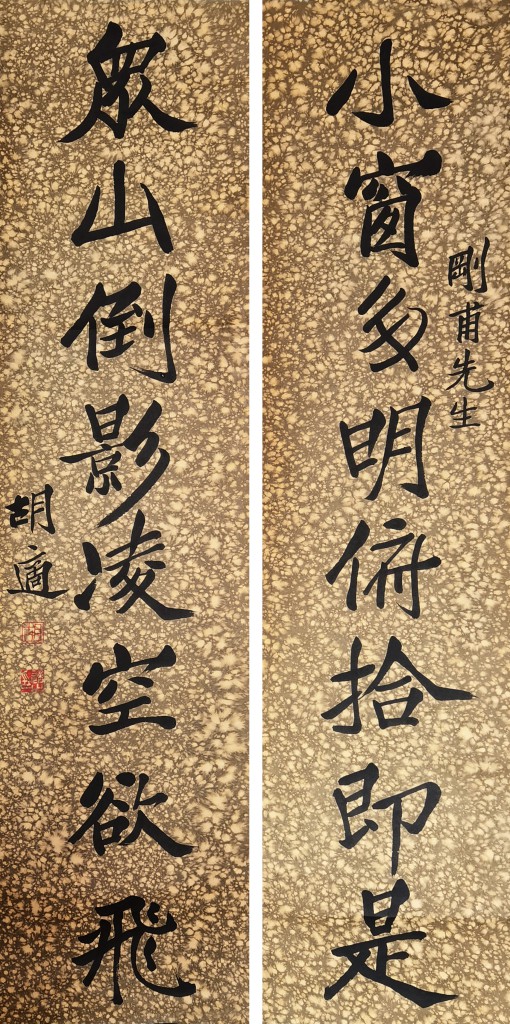 剛甫先生
小窗多明俯拾即是
眾山倒影凌空欲飛
胡適